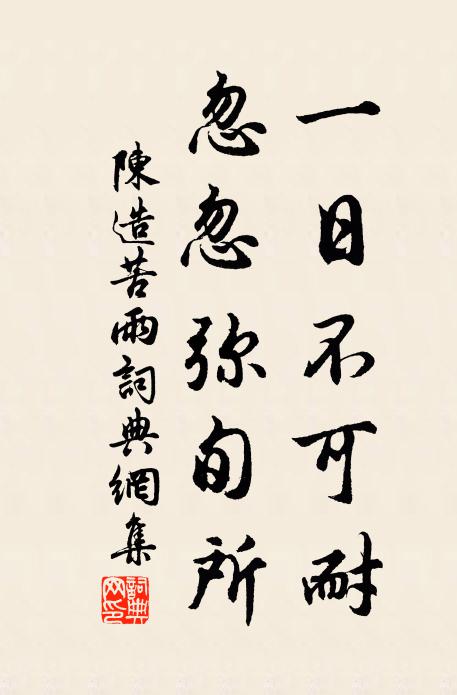 一日不可耐
忽忽弥旬所
陳造苦雨詞典網集
詞典網印